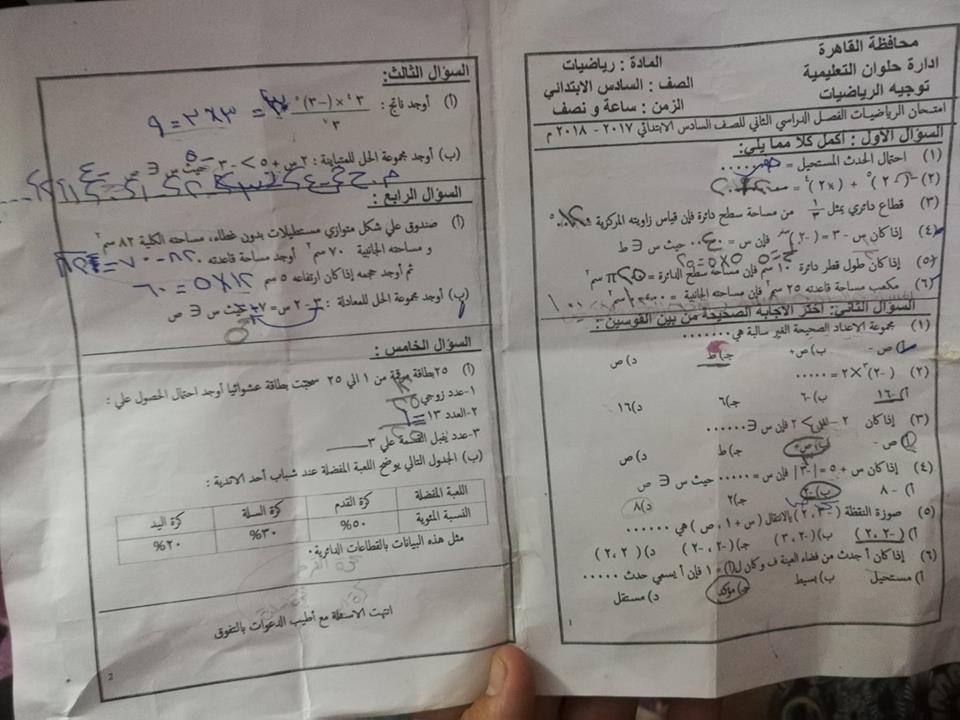 محافظة القاهرة
ادارة حلوان التعليمية
توجيه الرياضيات
المادة : رياضيات
الصف : السادس الابتدائي
الزمن : ساعة و نصف
امتحان الرياضيات الفصل الدراسي الثاني للصف السادس الابتدائي ٢٠١٧ - ٢٠١٨ م
السؤال الأول : اكمل كلا مما يلي:
(١) احتمال الحدث المستحيل = صفر
(٣) قطاع دائري يمثل ١/٣ من مساحة سطح دائرة فإن قياس زاويته المركزية
(٤) إذا كان س - ٣ = (-٢)صفر فإن س = حيث س ∈ ط
(٥) إذا كان طول قطر دائرة ١٠ سم فإن مساحة سطح الدائرة = ٢٥ سم٢
(٦) مكعب مساحة قاعدته ٢٥ سم٢ فإن مساحته الجانبية =
السؤال الثاني: اختر الاجابة الصحيحة من بين القوسين :
(١) مجموعة الاعداد الصحيحة الغير سالبة هي .......
أ) ص - ب) ص+ جـ) ط د) ص
(٢) (-٢)٣ × ٢ = .....
أ) -١٦ ب) -٦ جـ) ٦ د) ١٦
(٣) إذا كان فإن س ∈ ......
أ) ص - ب) ص+ جـ) ط د) ص
(٤) إذا كان س + ٥ = |-٣| فإن س = ..... حيث س ∈ ص
أ) -٨ ب) -٢ جـ) ٢ د) ٨
(٥) صورة النقطة (-٣ ، ٢) بالانتقال (س + ١ ، ص) هي ......
أ) (-٢ ، ٢) ب) (-٢ ، ٣) جـ) (-٢ ، -٢) د) (٢ ، ٢)
(٦) إذا كان أ حدث من فضاء العينة ف وكان ل(أ) = ١ فإن أ يسمي حدث .....
أ) مستحيل ب) بسيط جـ) مؤكد د) مستقل
1
السؤال الثالث:
(أ) أوجد ناتج :
= ٣×٣ = ٩
(ب) أوجد مجموعة الحل للمتباينة : ٢ س + ٥ > -٣ حيث س ∈ ص
السؤال الرابع :
أ) صندوق علي شكل متوازي مستطيلات بدون غطاء، مساحته الكلية ٨٢ سم٢
و مساحته الجانبية ٧٠ سم٢ أوجد مساحة قاعدته
ثم أوجد حجمه إذا كان ارتفاعه ٥ سم ١٢×٥ = ٦٠
ب) أوجد مجموعة الحل للمعادلة : ٣ - ٢ س = ٧ حيث س ∈ ص
السؤال الخامس :
(أ) ٢٥ بطاقة مرقمة من ١ الي ٢٥ سحبت بطاقة عشوائيا أوجد احتمال الحصول علي :
١- عدد زوجي
٢- العدد ١٣
٣- عدد يقبل القسمة علي ٣
(ب) الجدول التالي يوضح اللعبة المفضلة عند شباب أحد الاندية :
اللعبة المفضلة كرة القدم كرة السلة كرة اليد
النسبة المئوية ٥٠% ٣٠% ٢٠%
مثل هذه البيانات بالقطاعات الدائرية.
انتهت الاسئلة مع أطيب الدعوات بالتفوق
2